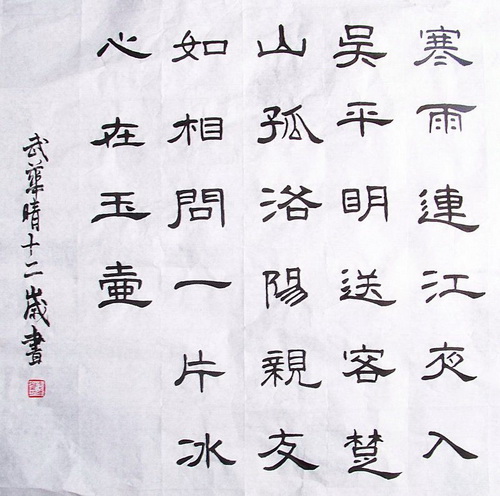 寒雨連江夜入
吳平明送客楚
山孤洛陽親友
如相問一片冰
心在玉壺
武華晴十二歲書